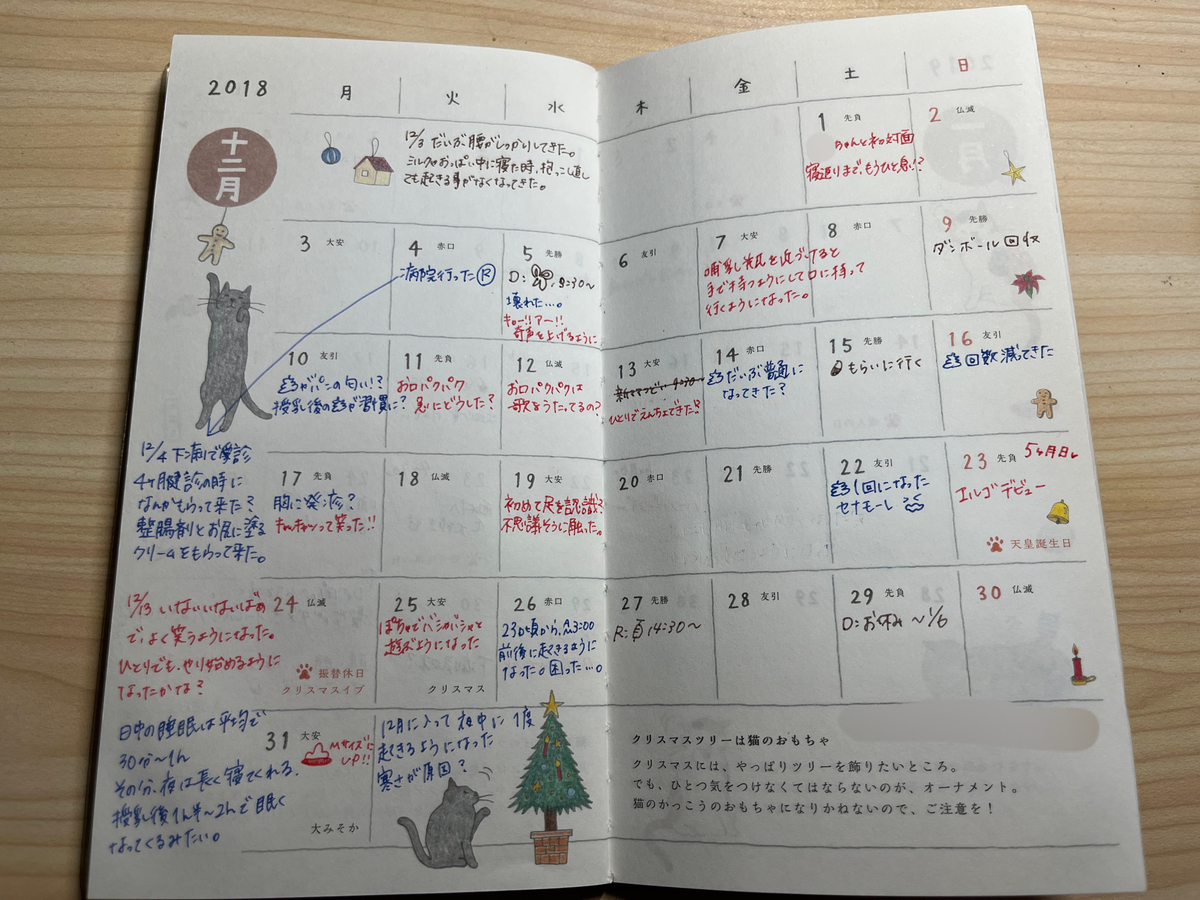 2018
月
火
水
木
金
土
日
十二月
12/3 だいぶ腰がしっかりしてきた。
ミルクやおっぱい中に寝た時、抱っこし直し
ても起きる事がなくなってきた。
1 先負
ちゃんと初対面
寝返りまで、もうひと息!?
2 仏滅
3 大安
4 赤口
病院行った Ⓡ
5 先勝
D: 9:30〜
壊れた…。
キャー!!アー!!
奇声を上げるように
6 友引
7 大安
哺乳瓶を近づけると
手で持つようにして口に持って
行くようになった。
8 赤口
9 先勝
ダンボール回収
10 友引
がパンの匂い!?
授乳後の が習慣に?
11 先負
お口パクパク
急にどうした?
12 仏滅
お口パクパクは
歌をうたってるの?
13 大安
9:30〜
ひとりでえんちょできた!?
14 赤口
だいぶ普通に
なってきた?
15 先勝
もらいに行く
16 友引
回数減ってきた
12/4 下痢で受診
4ヶ月健診の時に
なんかもらって来た?
整腸剤とお尻に塗る
クリームをもらって来た。
17 先負
胸に発疹?
キャッキャッって笑った!!
18 仏滅
19 大安
初めて尺を認識?
不思議そうに触った。
20 赤口
21 先勝
22 友引
1回になった
セナモーレ
23 先負
5ヶ月日
エルゴデビュー
天皇誕生日
12/13 いないいないばぁ
で、よく笑うようになった。
ひとりでも、やり始めるように
なったかな?
24 仏滅
振替休日
クリスマスイブ
25 大安
ぽちゃでバシャバシャと
遊ぶようになった
クリスマス
26 赤口
23日頃から、AM3:00
前後に起きるように
なった。困った…。
27 先勝
R: 14:30〜
28 友引
29 先負
D:お休み 〜1/6
30 仏滅
日中の睡眠は平均で
30分〜1h
その分、夜は長く寝てくれる。
授乳後1h半〜2hで眠く
なってくるみたい。
31 大安
Mサイズに
UP!!
大みそか
12月に入って夜中に1度
起きるようになった
寒さが原因?
クリスマスツリーは猫のおもちゃ
クリスマスには、やっぱりツリーを飾りたいところ。
でも、ひとつ気をつけなくてはならないのが、オーナメント。
猫のかっこうのおもちゃになりかねないので、ご注意を!